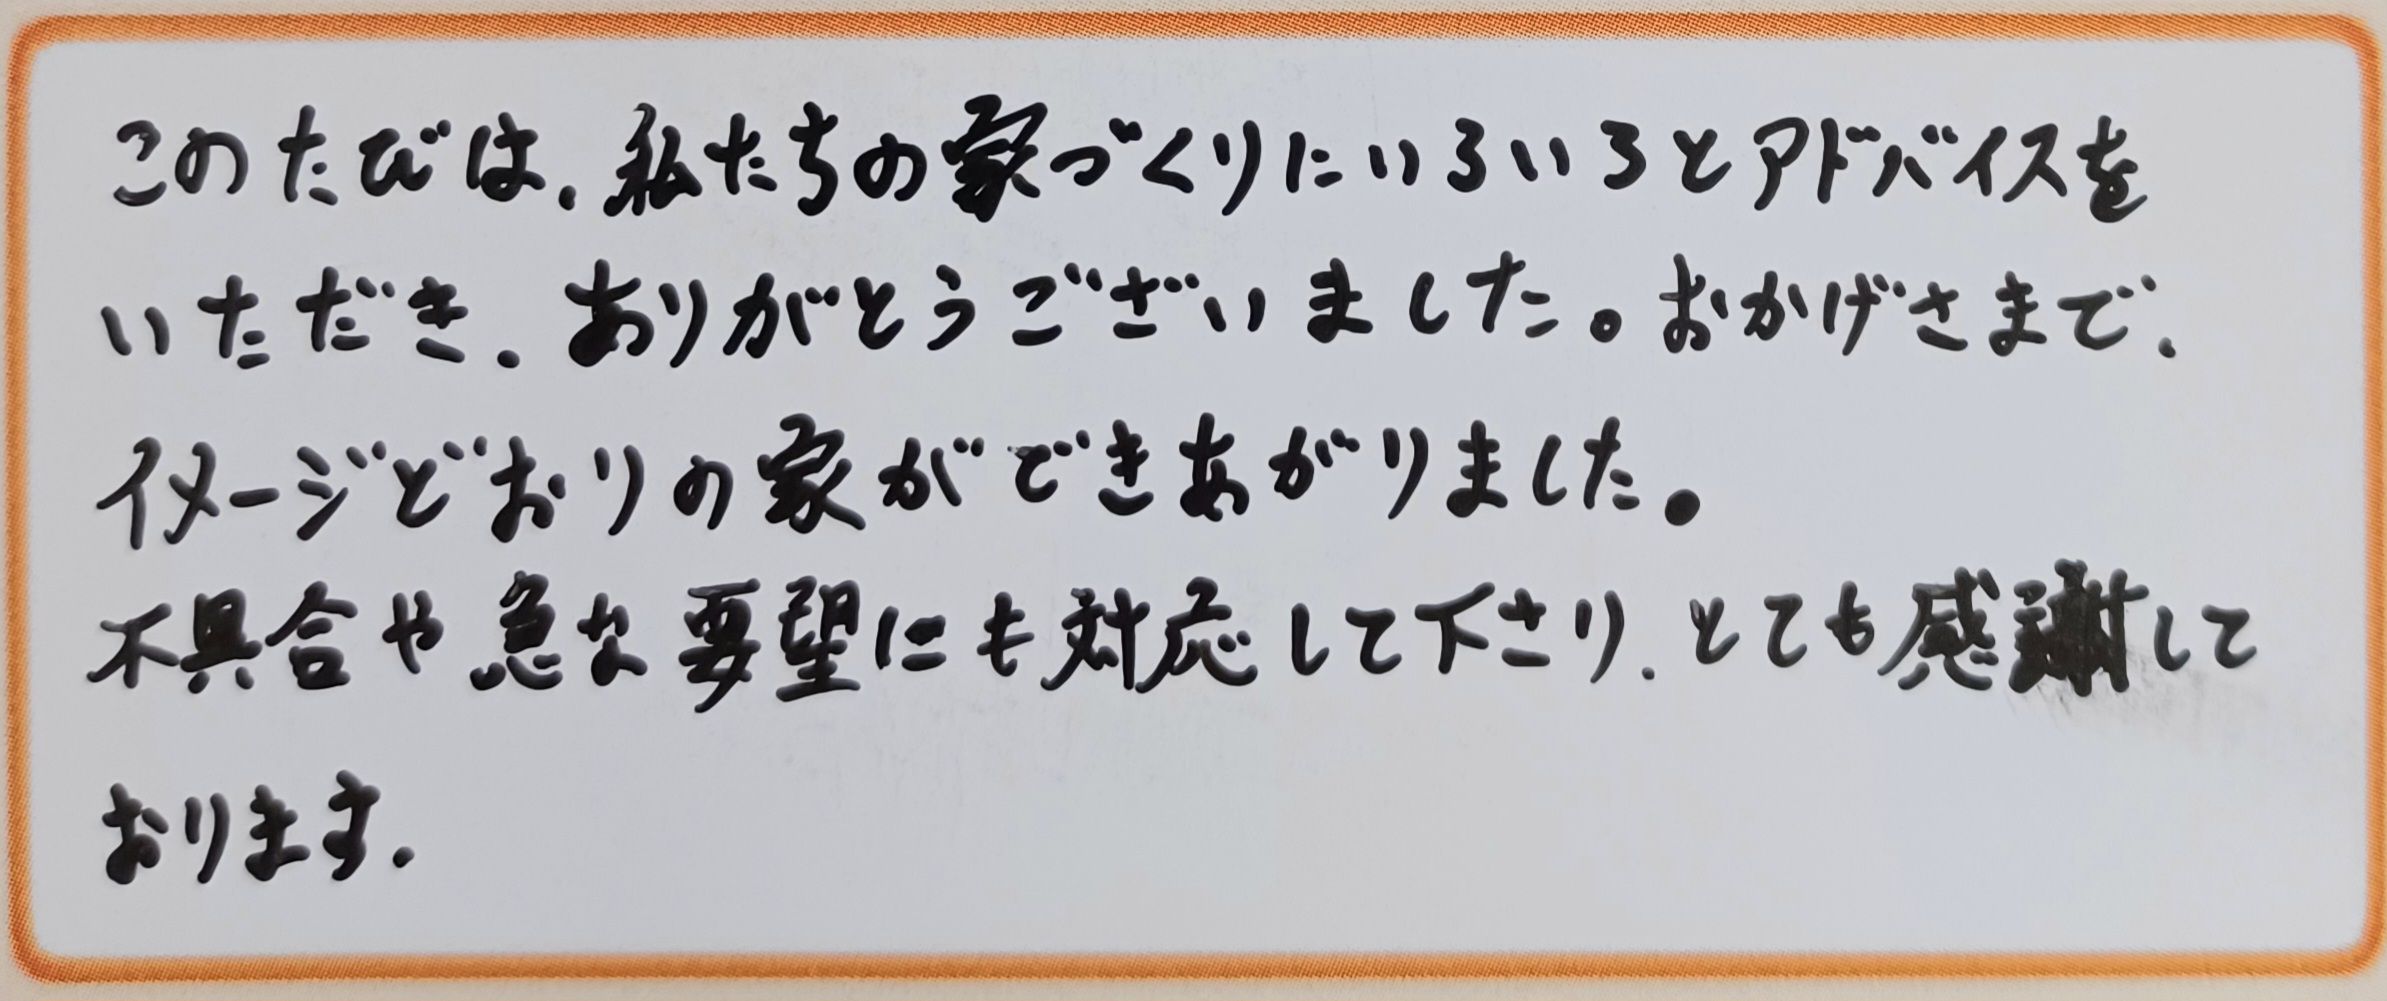 このたびは、私たちの家づくりにいろいろとアドバイスを
いただき、ありがとうございました。おかげさまで、
イメージどおりの家ができあがりました。
不具合や急な要望にも対応して下さり、とても感謝して
おります。